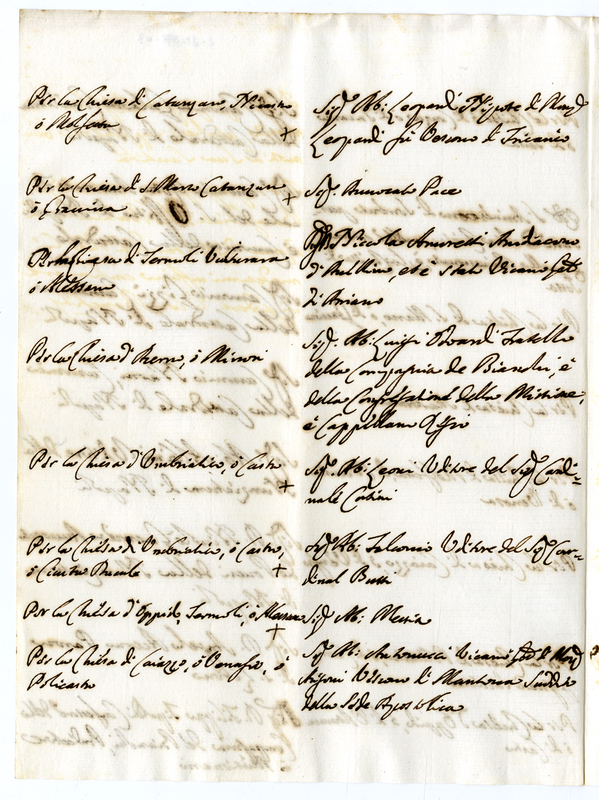 Per la Chiesa di Catanzaro, Nicastro
ò Molfetta +
Sig.r Ab: Leopardi Nipote di Mons.
Leopardi fù Vescovo di Tricarico
Per la Chiesa di S. Marco Catanzaro
ò Gravina +
Sig.r Avvocato Pace
Per la Chiesa di Termoli Vulturara
ò
Nicola Amoretti Arcidiacono
d'Avellino, et è stato Vicario Gñle
di Ariano
Per la Chiesa d'Acerra, ò Minori
Sig.r Ab: Luigi Odoardi Fratello
della Compagnia de Bianchi, e
della Congregatione della Missione,
e Cappellano
Per la Chiesa d'Umbriatico, ò Castro +
Sig.r Ab: Leoni Uditore del Sig.r Cardi=
nale
Per la Chiesa di Umbriatico, ò Castro,
ò +
Sig.r Ab: Uditore del Sig.r Car=
dinal Bussi
Per la Chiesa d'Oppido, Termoli, ò +
Sig.r Ab:
Per la Chiesa di Caiazzo, ò Venafro, ò
Policastro
Sig.r Ab: Antonucci Vicario Gñle di Mons.
Vescovo di Mantova Suddito
della Sede Apostolica